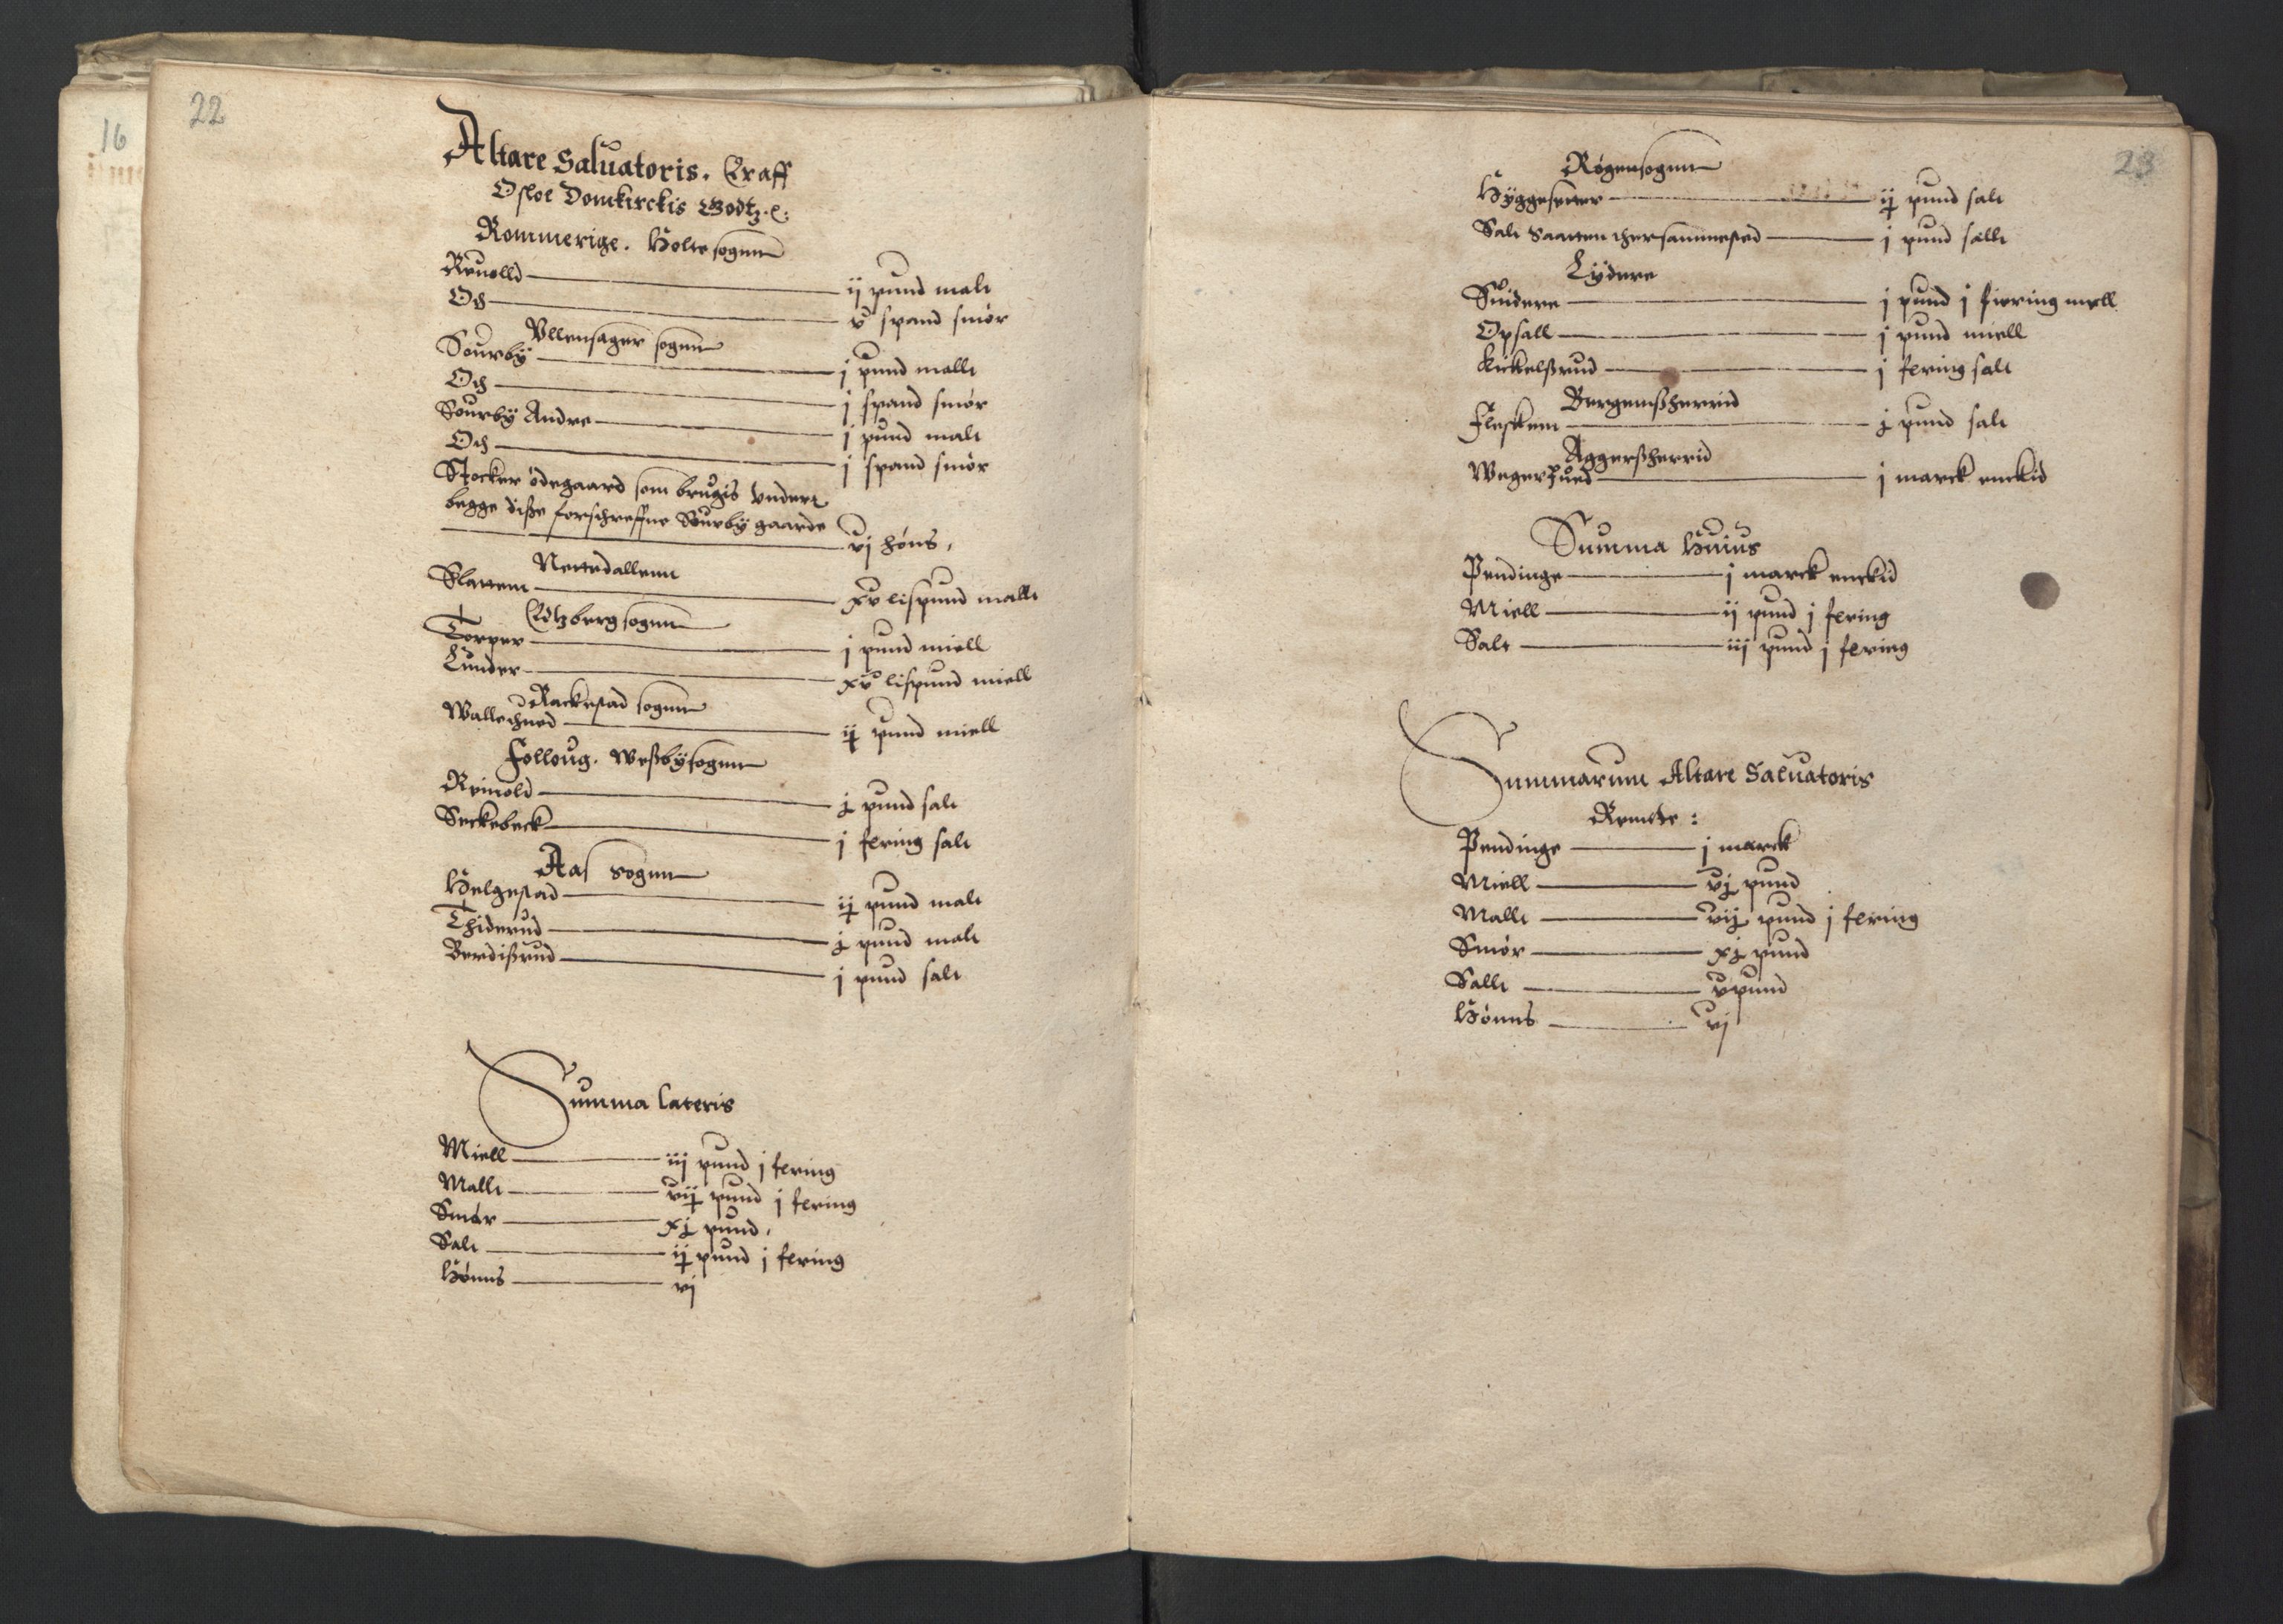 16
22
Altare Saluatoris. Aff
Osloe Domkirckis Godtz.
Rommerige. Holtesognn
Reuolld — ij pund malt
Och — v spand smør
Vllensager sognn
Sourby — j pund mallt
Och — j spand smør
Sourby Andre — j pund malt
Och — j spand smør
Stocker ødegaard som brugis vnder
begge diße forschreffne Sourby gaarde
— vj høns,
Nettedallenn
Slattem — xv lispund mallt
Edtzberg sognn
Torper — j pund miell
Lunder — xv lispund miell
Rackestad sognn
Walle — ij pund miell
Folloug. Weßbysognn
Reinold — j pund salt
Seckebeck — j fering salt
Aas sognn
Helgestad — ij pund malt
Thiderud — j pund malt
Berdißrud — j pund salt
Summa Lateris
Miell — iij pund j fering
Mallt — vij pund j fering
Smør — xj pund,
Salt — ij pund j fering
Hønns — vj
23
Røgensognn
Hyggesetter — ij pund salt
Salt Saatten thersammested — j pund sallt
Lydere
Suidere — j pund j fiering mell
Opsall — j pund miell
Kickelßrud — j fering salt
Bergemßherrid
Fleskem — j pund salt
Aggerßherrid
Weger — j marck enckid
Summa Huius
Pendinge — j marck enckid
Miell — ij pund j fering
Salt — iij pund j fering
Summarum Altare Saluatoris
Rentte:
Pendinge — j marck
Miell — vj pund
Mallt — vij pund j fering
Smør — xj pund
Sallt — v pund
Hønns — vj